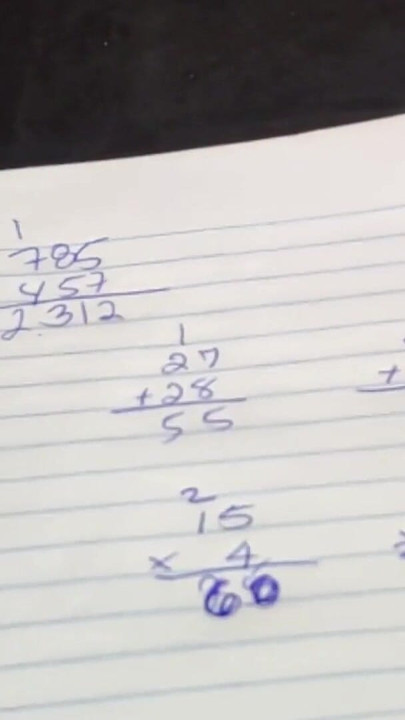 1
785
457
2312
1
27
+28
55
+
2
15
× 4
60